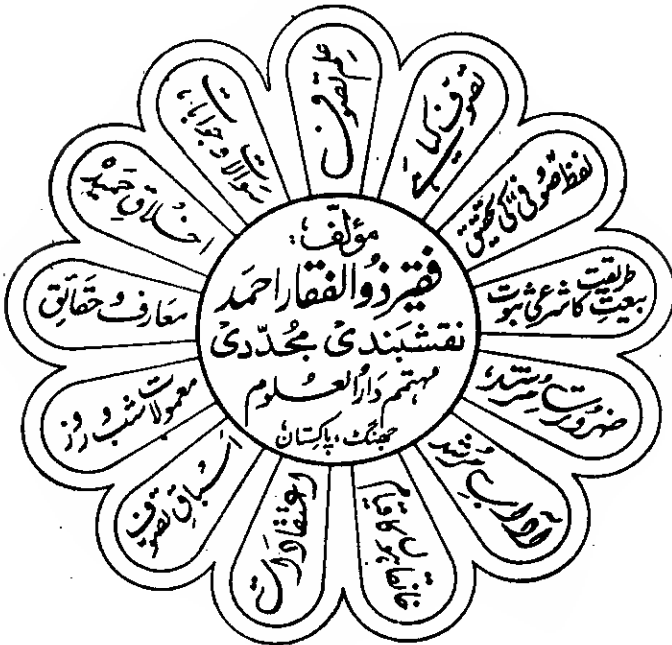 مؤلف:
فقیر ذُوالفقار احمد
نقشبندی مجدّدی
مہتمم دارُالعلوم
جھنگ، پاکستان
علم تصوف
تصوف کیا ہے
لفظ صُوفی کی تحقیق
بیعتِ طریقت کا شرعی ثبوت
ضرورتِ مرشد
آدابِ مُرشد
خانقاہوں کا قیام
اعتقادات
اسباقِ تصوف
معمولات شب و روز
معارف و حقائق
اخلاقِ حمیدہ
سوالات و جوابات